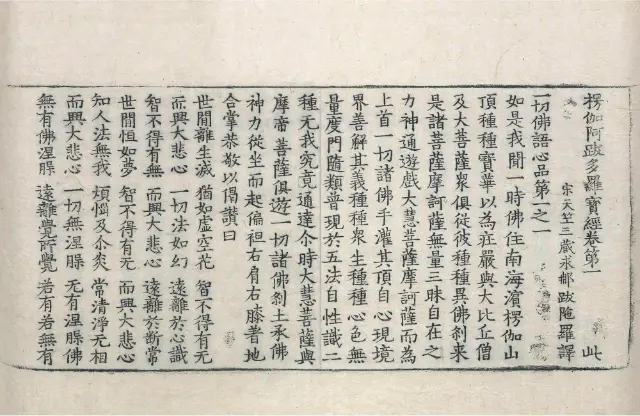 楞伽阿跋多羅寶經卷第一 此
宋天竺三藏求那跋陁羅譯
一切佛語心品第一之一
如是我聞一時佛住南海濵楞伽山
頂種種寶華以為莊嚴與大比丘僧
及大菩薩衆俱從彼種種異佛剎來
是諸菩薩摩訶薩無量三昧自在之
力神通遊戲大慧菩薩摩訶薩而為
上首一切諸佛手灌其頂自心現境
界善解其義種種衆生種種心色無
量度門隨類普現於五法自性識二
種无我究竟通達尒時大慧菩薩與
摩帝菩薩俱遊一切諸佛剎土承佛
神力從坐而起偏袒右肩右膝著地
合掌恭敬以偈讚曰
世閒離生滅 猶如虛空花 智不得有无
而興大悲心 一切法如幻 遠離於心識
智不得有無 而興大悲心 遠離於斷常
世閒恒如夢 智不得有无 而興大悲心
知人法無我 煩惱及尒炎 常清淨无相
而興大悲心 一切無涅槃 无有涅槃佛
無有佛涅槃 遠離覺所覺 若有若無有